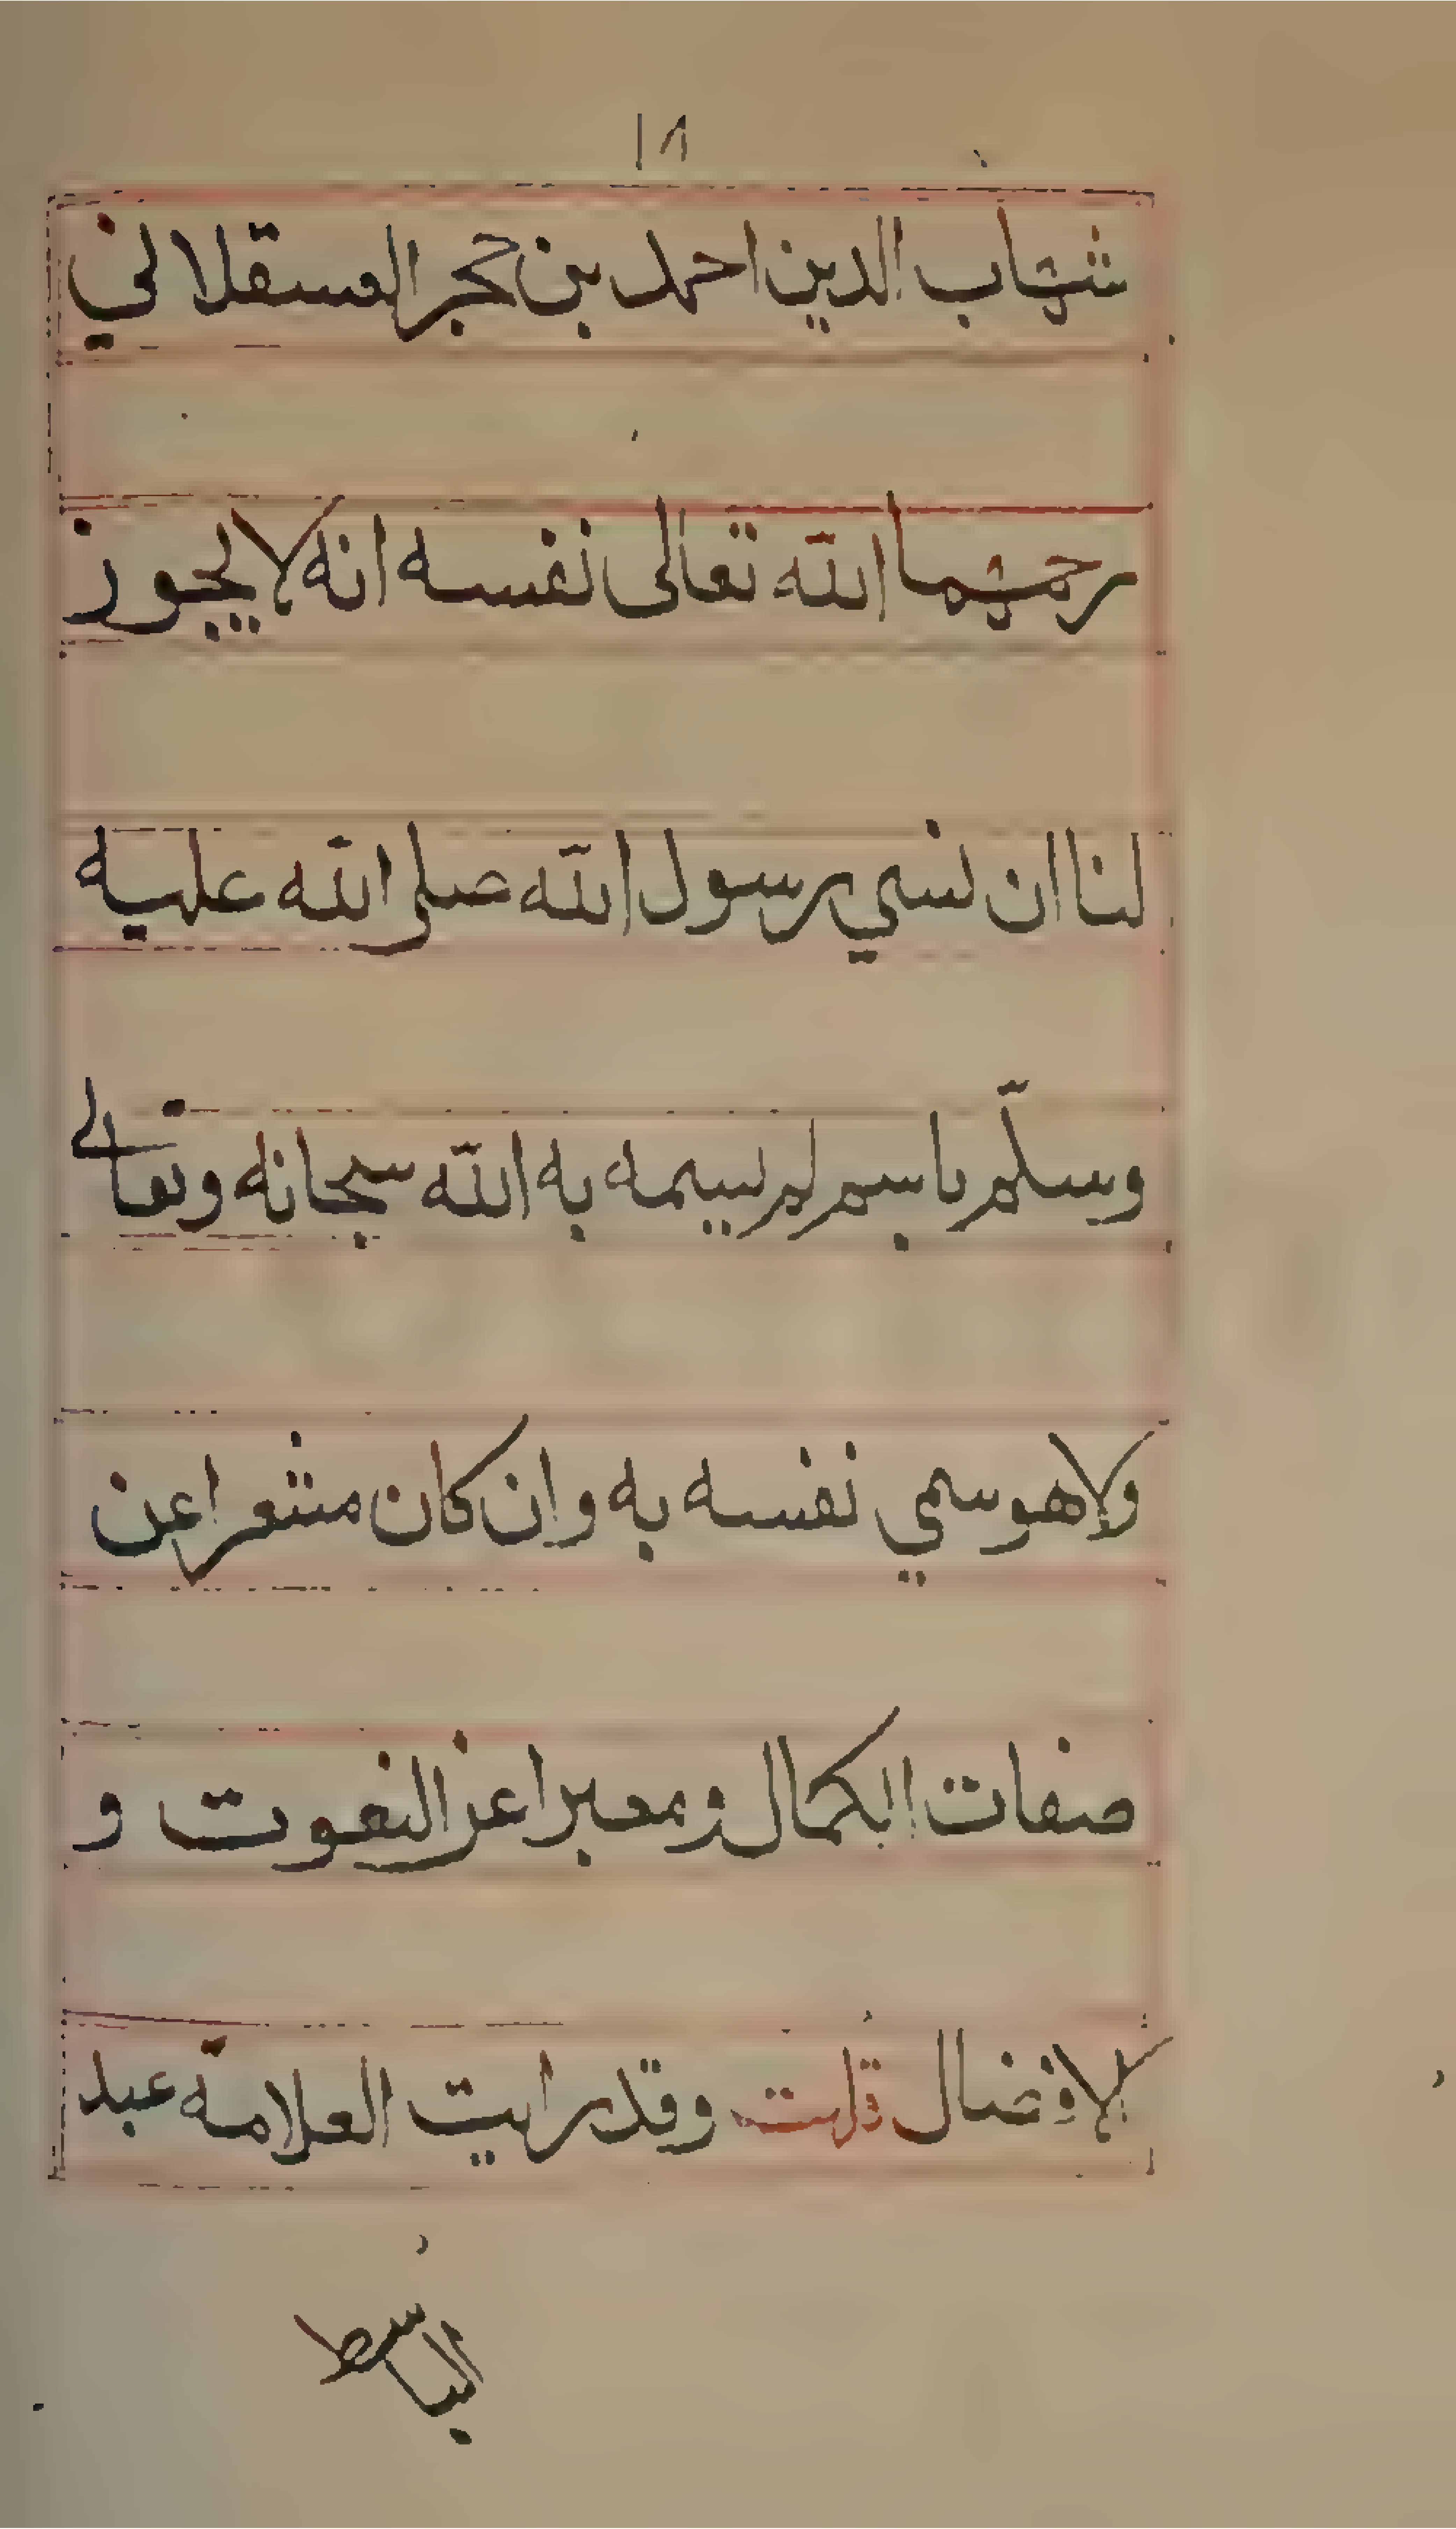 ١٨
شهاب الدين احمد بن حجر العسقلاني
رحمهما الله تعالى نفسه انه لا يجوز
لنا ان نسمي رسول الله صلى الله عليه
وسلّم باسم لم يسمه به الله سبحانه وتعالى
ولا هو سمي نفسه به وان كان مشعرا عن
صفات الكمال ومعبرا عن النعوت و
الافضال قلت وقد رايت العلامة عبد
الباسط